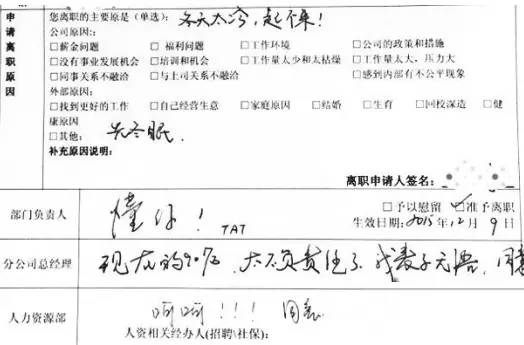 申请离职原因
您离职的主要原是(单选): 冬天太冷,起不来!
公司原因::
□薪金问题 □福利问题 □工作环境 □公司的政策和措施
□没有事业发展机会 □培训和机会 □工作量太少和太枯燥 □工作量太大,压力大
□同事关系不融洽 □与上司关系不融洽 □感到内部有不公平现象
外部原因:
□找到更好的工作 □自己经营生意 □家庭原因 □结婚 □生育 □回校深造 □健
康原因
□其他: 先冬眠.
补充原因说明:
离职申请人签名:
部门负责人 懂你! TAT
□予以慰留 ☑准予离职
生效日期:2015年12月9日
分公司总经理 现在的90后,太不负责任了,我表示无语,同意
人力资源部 呵呵!!! 同意
人资相关经办人(招聘\社保):